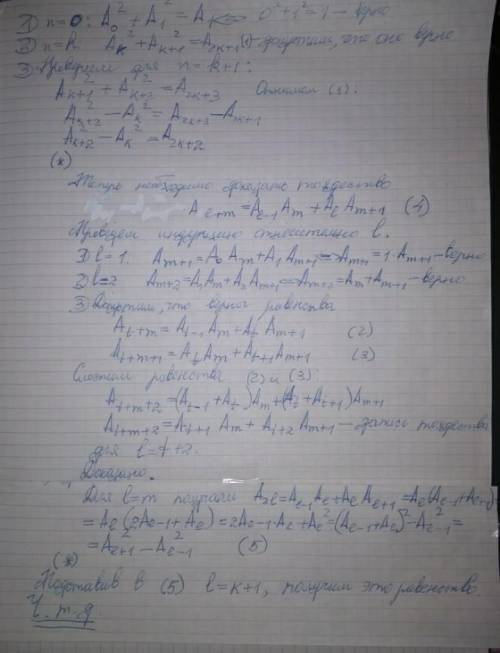 1) n=0: A₀² + A₁² = A₁ ⇔ 0² + 1² = 1 – верно
2) n=k. A_k² + A_{k+1}² = A_{2k+1} (1) – допустим, что оно верно
3) Проверим для n=k+1:
A_{k+1}² + A_{k+2}² = A_{2k+3} (1):
A_{k+2}² – A_k² = A_{2k+3} – A_{2k+1}
A_{k+2}² – A_k² = A_{2k+2}
(*)
Теперь необходимо доказать тождество
A_{l+m} = A_{l-1} A_m + A_l A_{m+1} (4)
Проведем индукцию относительно l.
1) l=1. A_{m+1} = A₀ A_m + A₁ A_{m+1} ⇔ A_{m+1} = 1·A_{m+1} – верно
2) l=2 A_{m+2} = A₁ A_m + A₂ A_{m+1} ⇔ A_{m+2} = A_m + A_{m+1} – верно
3) Допустим, что верны равенства
A_{t+m} = A_{t-1} A_m + A_t A_{m+1} (2)
A_{t+m+1} = A_t A_m + A_{t+1} A_{m+1} (3)
Сложим равенства (2) и (3):
A_{t+m+2} = (A_{t-1} + A_t) A_m + (A_t + A_{t+1}) A_{m+1}
A_{t+m+2} = A_{t+1} A_m + A_{t+2} A_{m+1} – запись тождества
для l = t+2.
Доказано.
Для l=m получаем A_{2l} = A_{l-1} A_l + A_l A_{l+1} = A_l (A_{l-1} + A_{l+1}) =
= A_l (2A_{l-1} + A_l) = 2A_{l-1}·A_l + A_l² = (A_{l-1} + A_l)² – A_{l-1}² =
= A_{l+1}² – A_{l-1}² (5)
(*)
Подставив в (5) l=k+1, получим это равенство
Ч.т.д